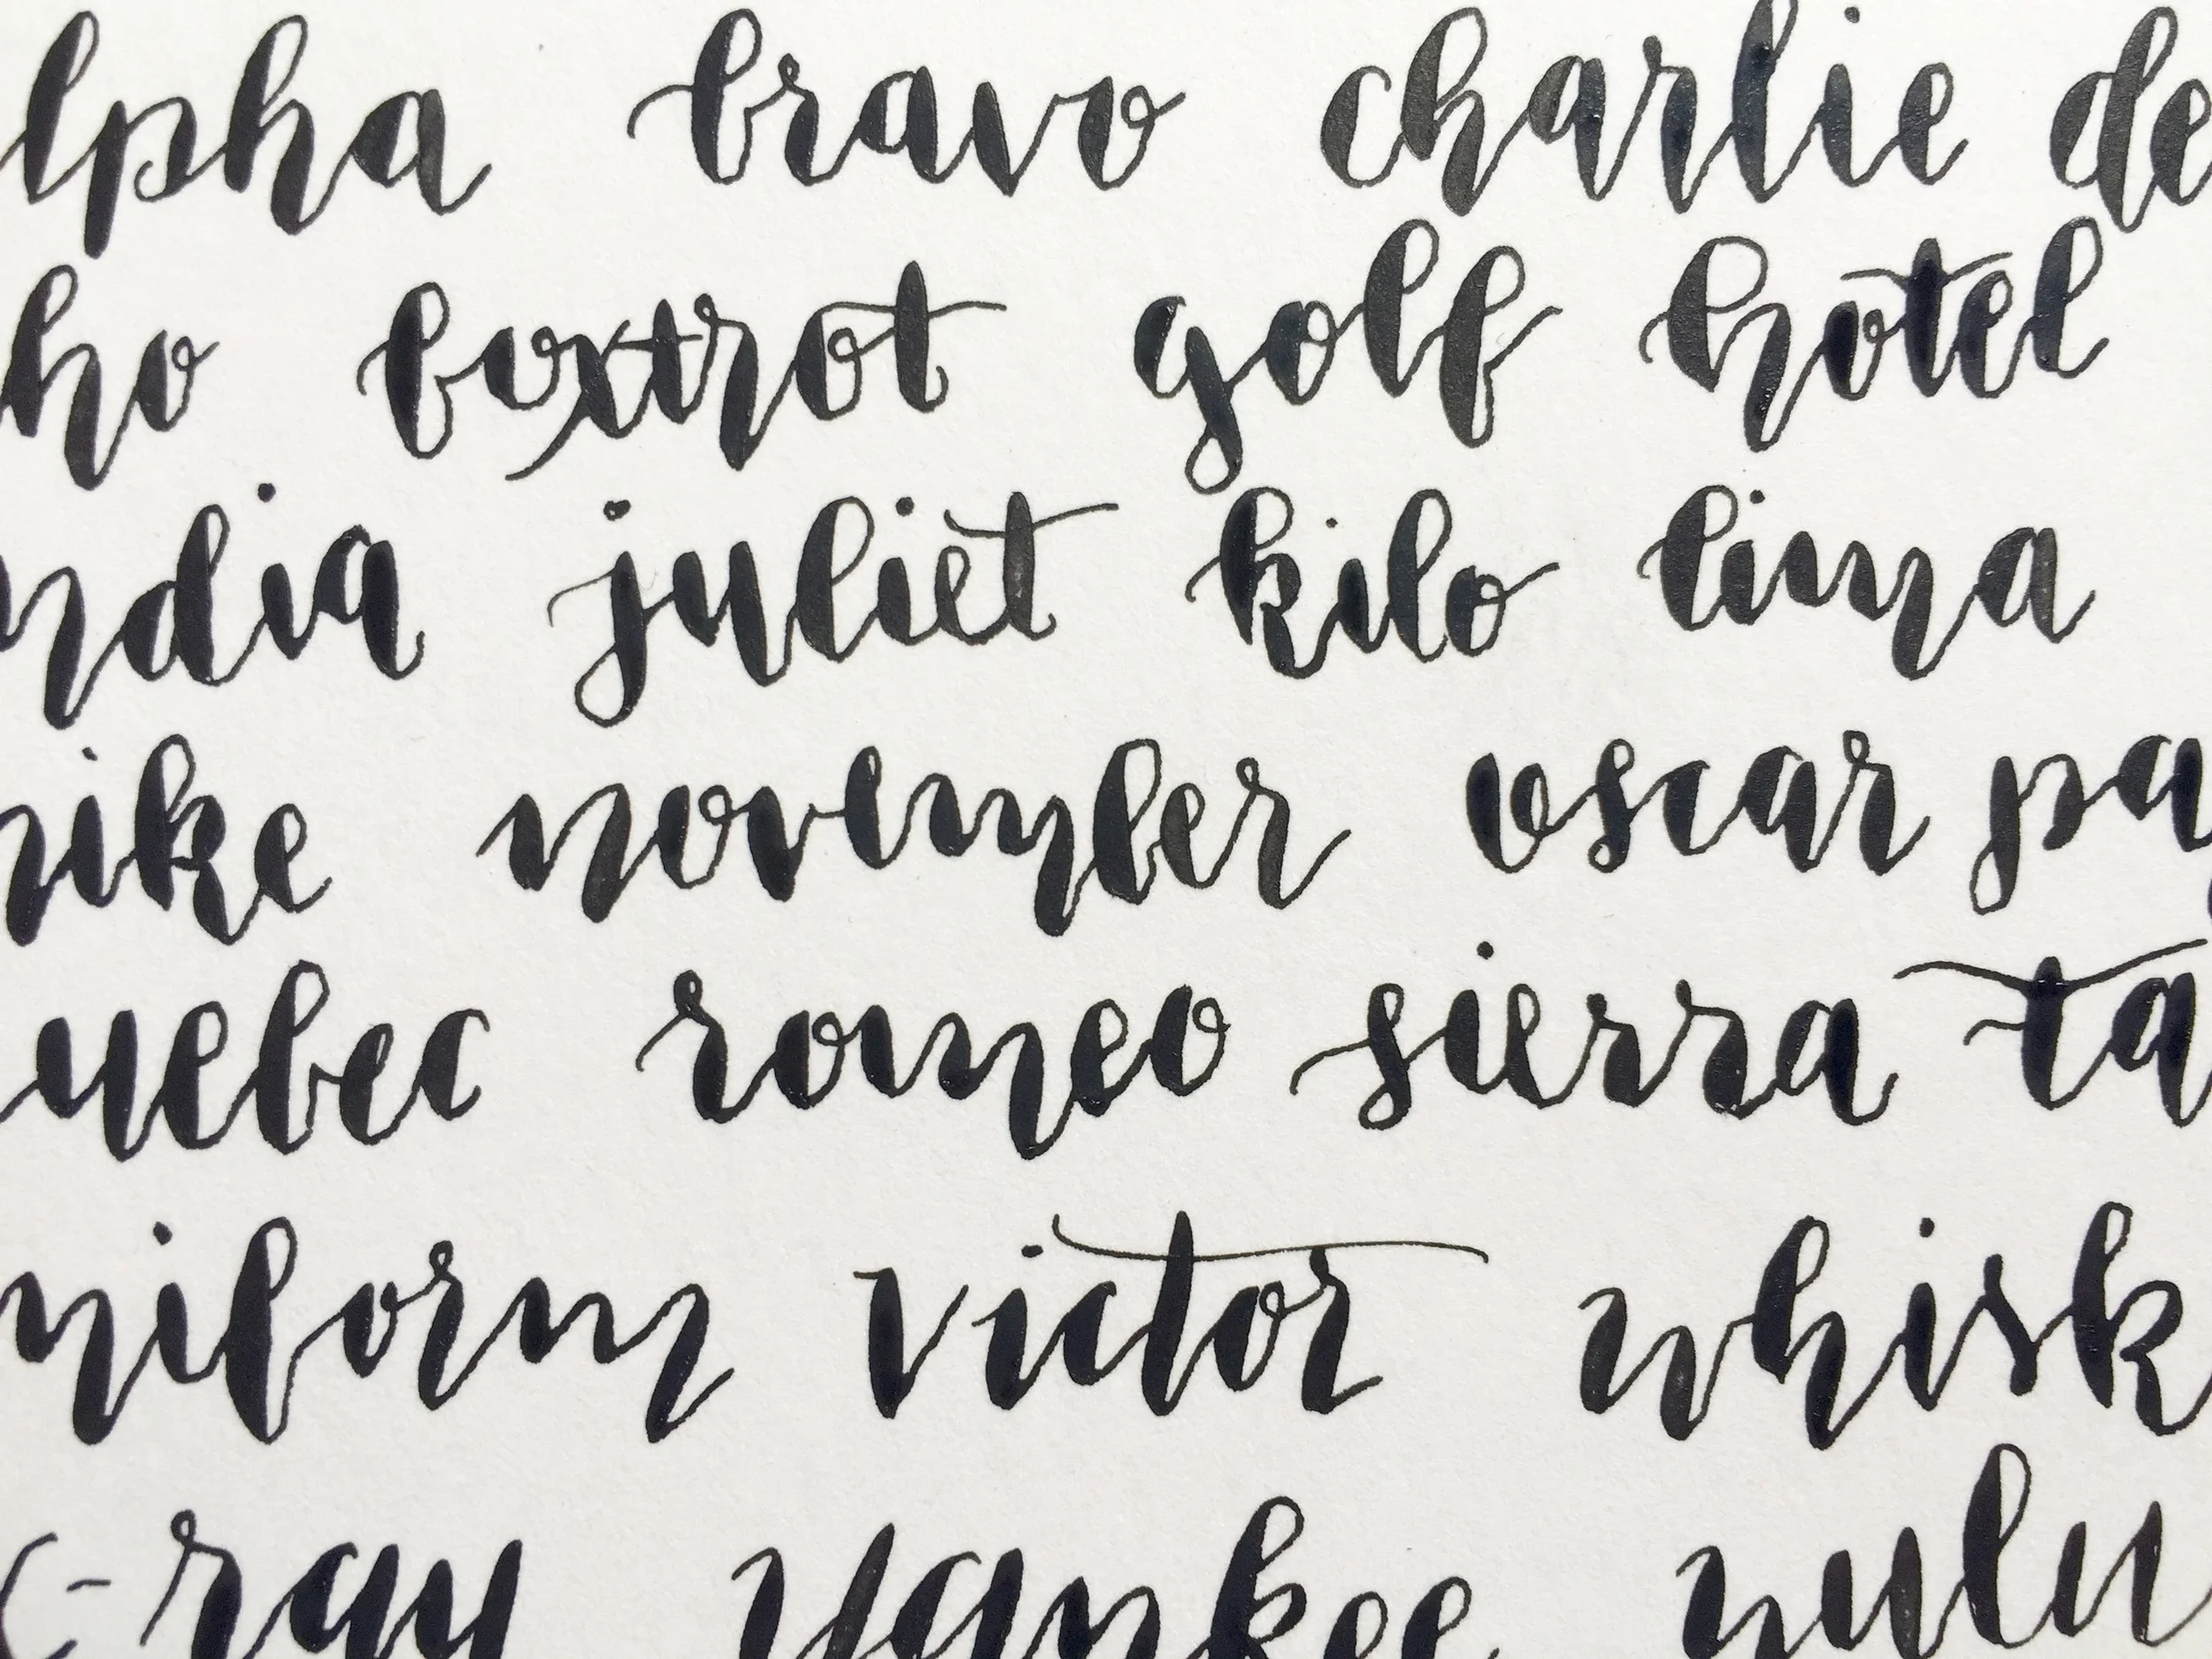 lpha bravo charlie de
ho foxtrot golf hotel
ndia juliet kilo lima
mike november oscar pa
uebec romeo sierra ta
niform victor whisk
x-ray yankee zulu